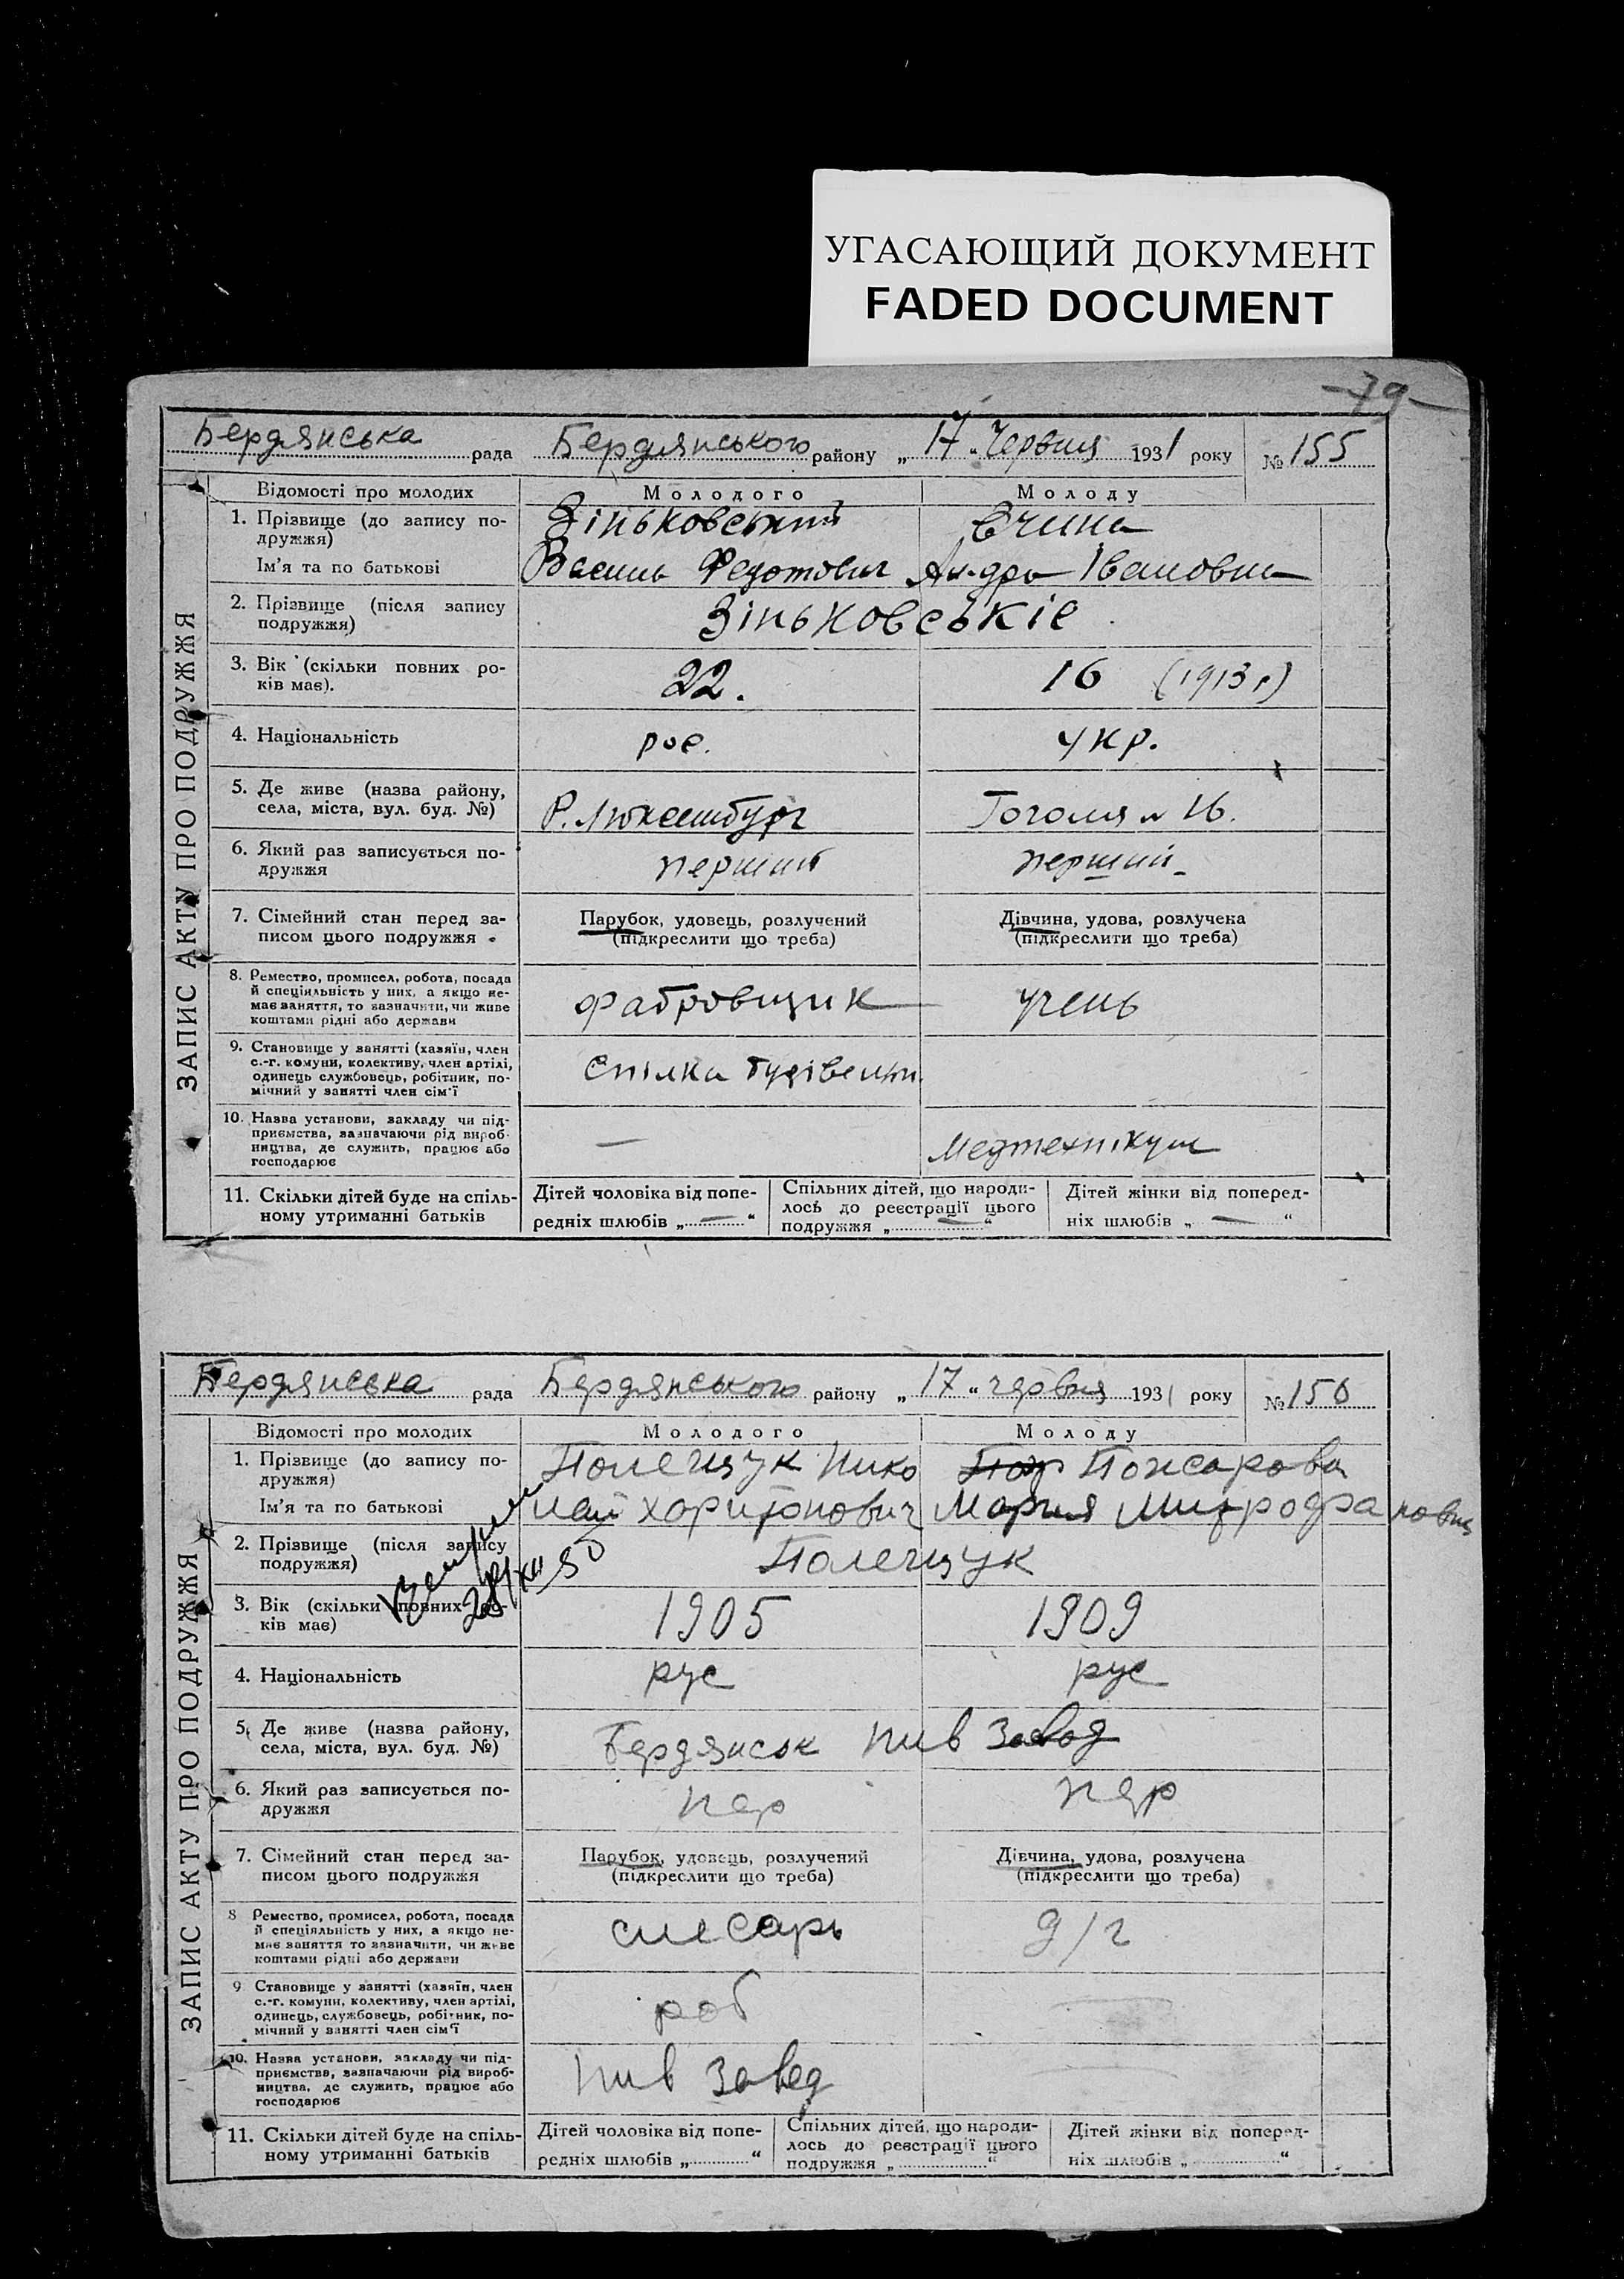 УГАСАЮЩИЙ ДОКУМЕНТ
FADED DOCUMENT
-79-
ЗАПИС АКТУ ПРО ПОДРУЖЖЯ
Бердянська рада Бердянського району „17“ Червня 1931 року № 155
Відомості про молодих Молодого Молоду
1. Прізвище (до запису по- Зіньковський
дружжя)
Ім'я та по батькові Василь Федотович Івановна
2. Прізвище (після запису Зіньковськіе
подружжя)
3. Вік (скільки повних ро- 22. 16 (1913 г)
ків має).
4. Національність рос. укр.
5. Де живе (назва району,
села, міста, вул. буд. №) Р. Люксембург Гоголя № 16.
6. Який раз записується по- перший перший
дружжя
7. Сімейний стан перед за- Парубок, удовець, розлучений Дівчина, удова, розлучена
писом цього подружжя (підкреслити що треба) (підкреслити що треба)
8. Ремество, промисел, робота, посада
й спеціяльність у них, а якщо не-
має заняття, то зазначити, чи живе фабровщик учень
коштами рідні або держави
9. Становище у занятті (хазяїн, член
с.-г. комуни, колективу, член артілі, Спілка
одинець службовець, робітник, по-
мічний у занятті член сім'ї
10. Назва установи, закладу чи під-
приємства, зазначаючи рід вироб-
ництва, де служить, працює або — Медтехнікум
господарює
11. Скільки дітей буде на спіль- Дітей чоловіка від попе- Спільних дітей, що народи- Дітей жінки від поперед-
ному утриманні батьків редніх шлюбів „ — “ лось до реєстрації цього ніх шлюбів „ — “
подружжя „ — “
ЗАПИС АКТУ ПРО ПОДРУЖЖЯ
Бердянська рада Бердянського району „17“ червня 1931 року № 156
Відомості про молодих Молодого Молоду
1. Прізвище (до запису по- Полещук Нико Пожарова
дружжя)
Ім'я та по батькові лай Харитонович Мария Митрофановна
2. Прізвище (після запису Полещук
подружжя)
3. Вік (скільки повних ро- 1905 1909
ків має)
4. Національність рус рус
5. Де живе (назва району,
села, міста, вул. буд. №) Бердянськ Пив Завод
6. Який раз записується по- пер пер
дружжя
7. Сімейний стан перед за- Парубок, удовець, розлучений Дівчина, удова, розлучена
писом цього подружжя (підкреслити що треба) (підкреслити що треба)
8 Ремество, промисел, робота, посада
й спеціяльність у них, а якщо не- слесарь д/г
має заняття то зазначити, чи живе
коштами рідні або держави
9 Становище у занятті (хазяїн, член
с.-г. комуни, колективу, член артілі, роб
одинець, службовець, робітник, по-
мічний у занятті член сім'ї
10. Назва установи, закладу чи під-
приємства, зазначаючи рід вироб- Пив Завод
ництва, де служить, працює або
господарює
11. Скільки дітей буде на спіль- Дітей чоловіка від попе- Спільних дітей, що народи- Дітей жінки від поперед-
ному утриманні батьків редніх шлюбів „ “ лось до реєстрації цього ніх шлюбів „ “
подружжя „ “